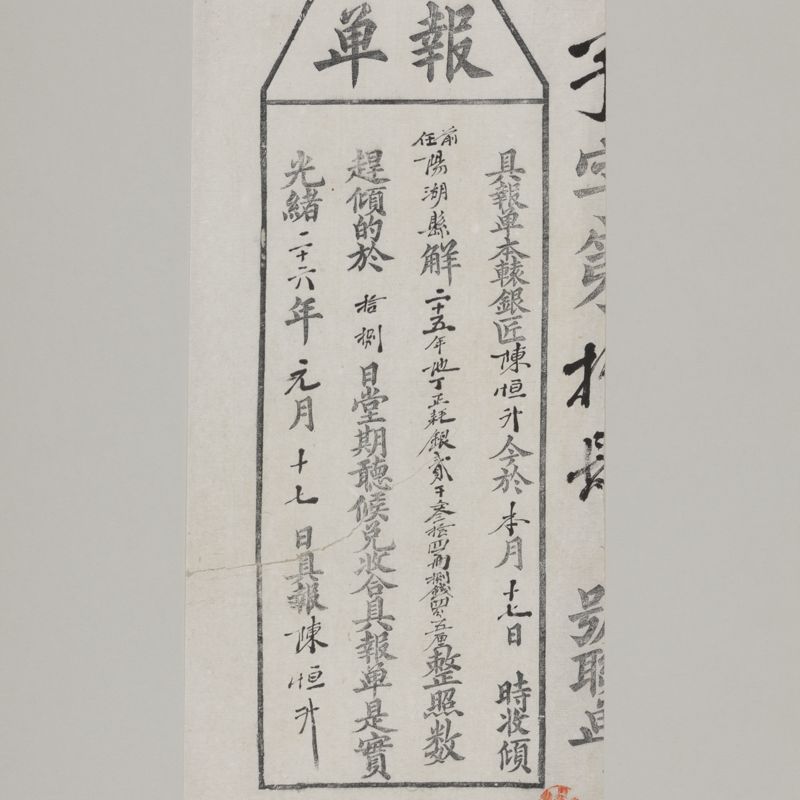 報单
具報单本轅銀匠陳恒升今於本月十七日時收傾
前任陽湖縣解二十五年地丁正耗銀貳千叁拾四兩捌錢五厘整照数
趕傾的於拾捌日堂期聽候兑收合具報单是實
光緒二十六年元月十七日具報陳恒升